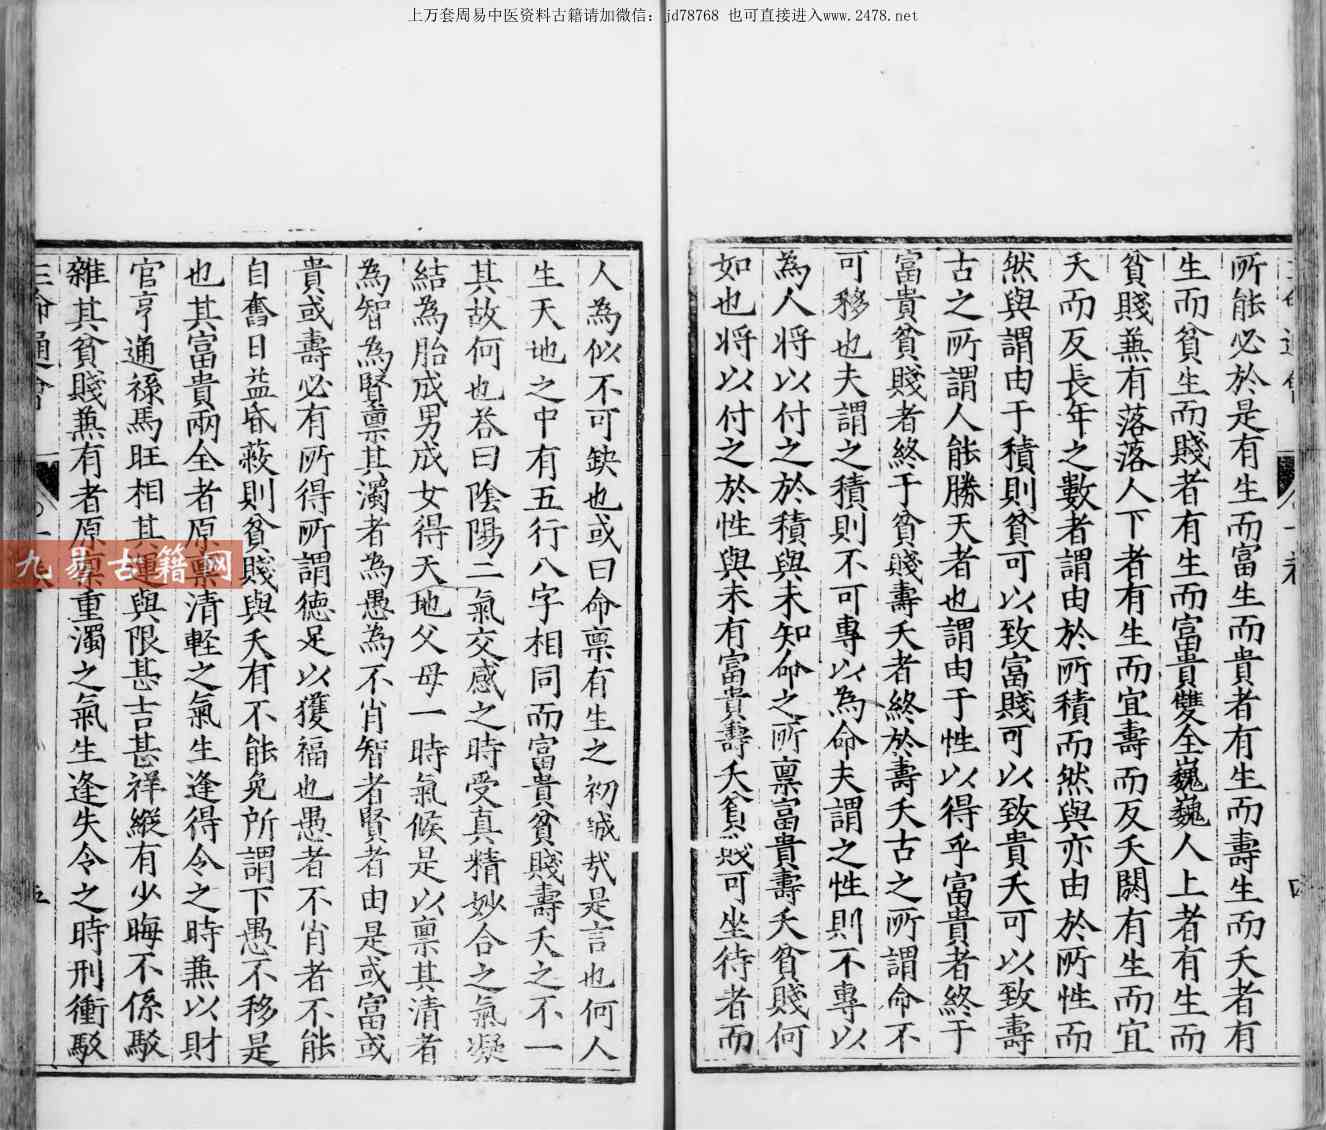 上万套周易中医资料古籍请加微信：jd78768 也可直接进入www.2478.net
所能必於是有生而富生而貴者有生而壽生而夭者有
生而貧生而賤者有生而富貴雙全巍巍人上者有生而
貧賤兼有落落人下者有生而宜壽而反夭閼有生而宜
夭而反長年之數者謂由於所積而然與亦由於所性而
然與謂由于積則貧可以致富賤可以致貴夭可以致壽
古之所謂人能勝天者也謂由于性以得乎富貴者終于
富貴貧賤者終于貧賤壽夭者終於壽夭古之所謂命不
可移也夫謂之積則不可專以為命夫謂之性則不專以
為人將以付之於積與未知命之所禀富貴壽夭貧賤何
如也將以付之於性與未有富貴壽夭貧賤可坐待者而
人為似不可缺也或曰命禀有生之初誠哉是言也何人
生天地之中有五行八字相同而富貴貧賤壽夭之不一
其故何也荅曰陰陽二氣交感之時受真精妙合之氣凝
結為胎成男成女得天地父母一時氣候是以禀其清者
為智為賢禀其濁者為愚為不肖智者賢者由是或富或
貴或壽必有所得所謂德足以獲福也愚者不肖者不能
自奮日益昏蔽則貧賤與夭有不能免所謂下愚不移是
也其富貴兩全者原禀清輕之氣生逢得令之時兼以財
官亨通祿馬旺相其運與限甚吉甚祥縱有少晦不係駁
雜其貧賤兼有者原禀重濁之氣生逢失令之時刑衝駁
三命通會
五
九易古籍网